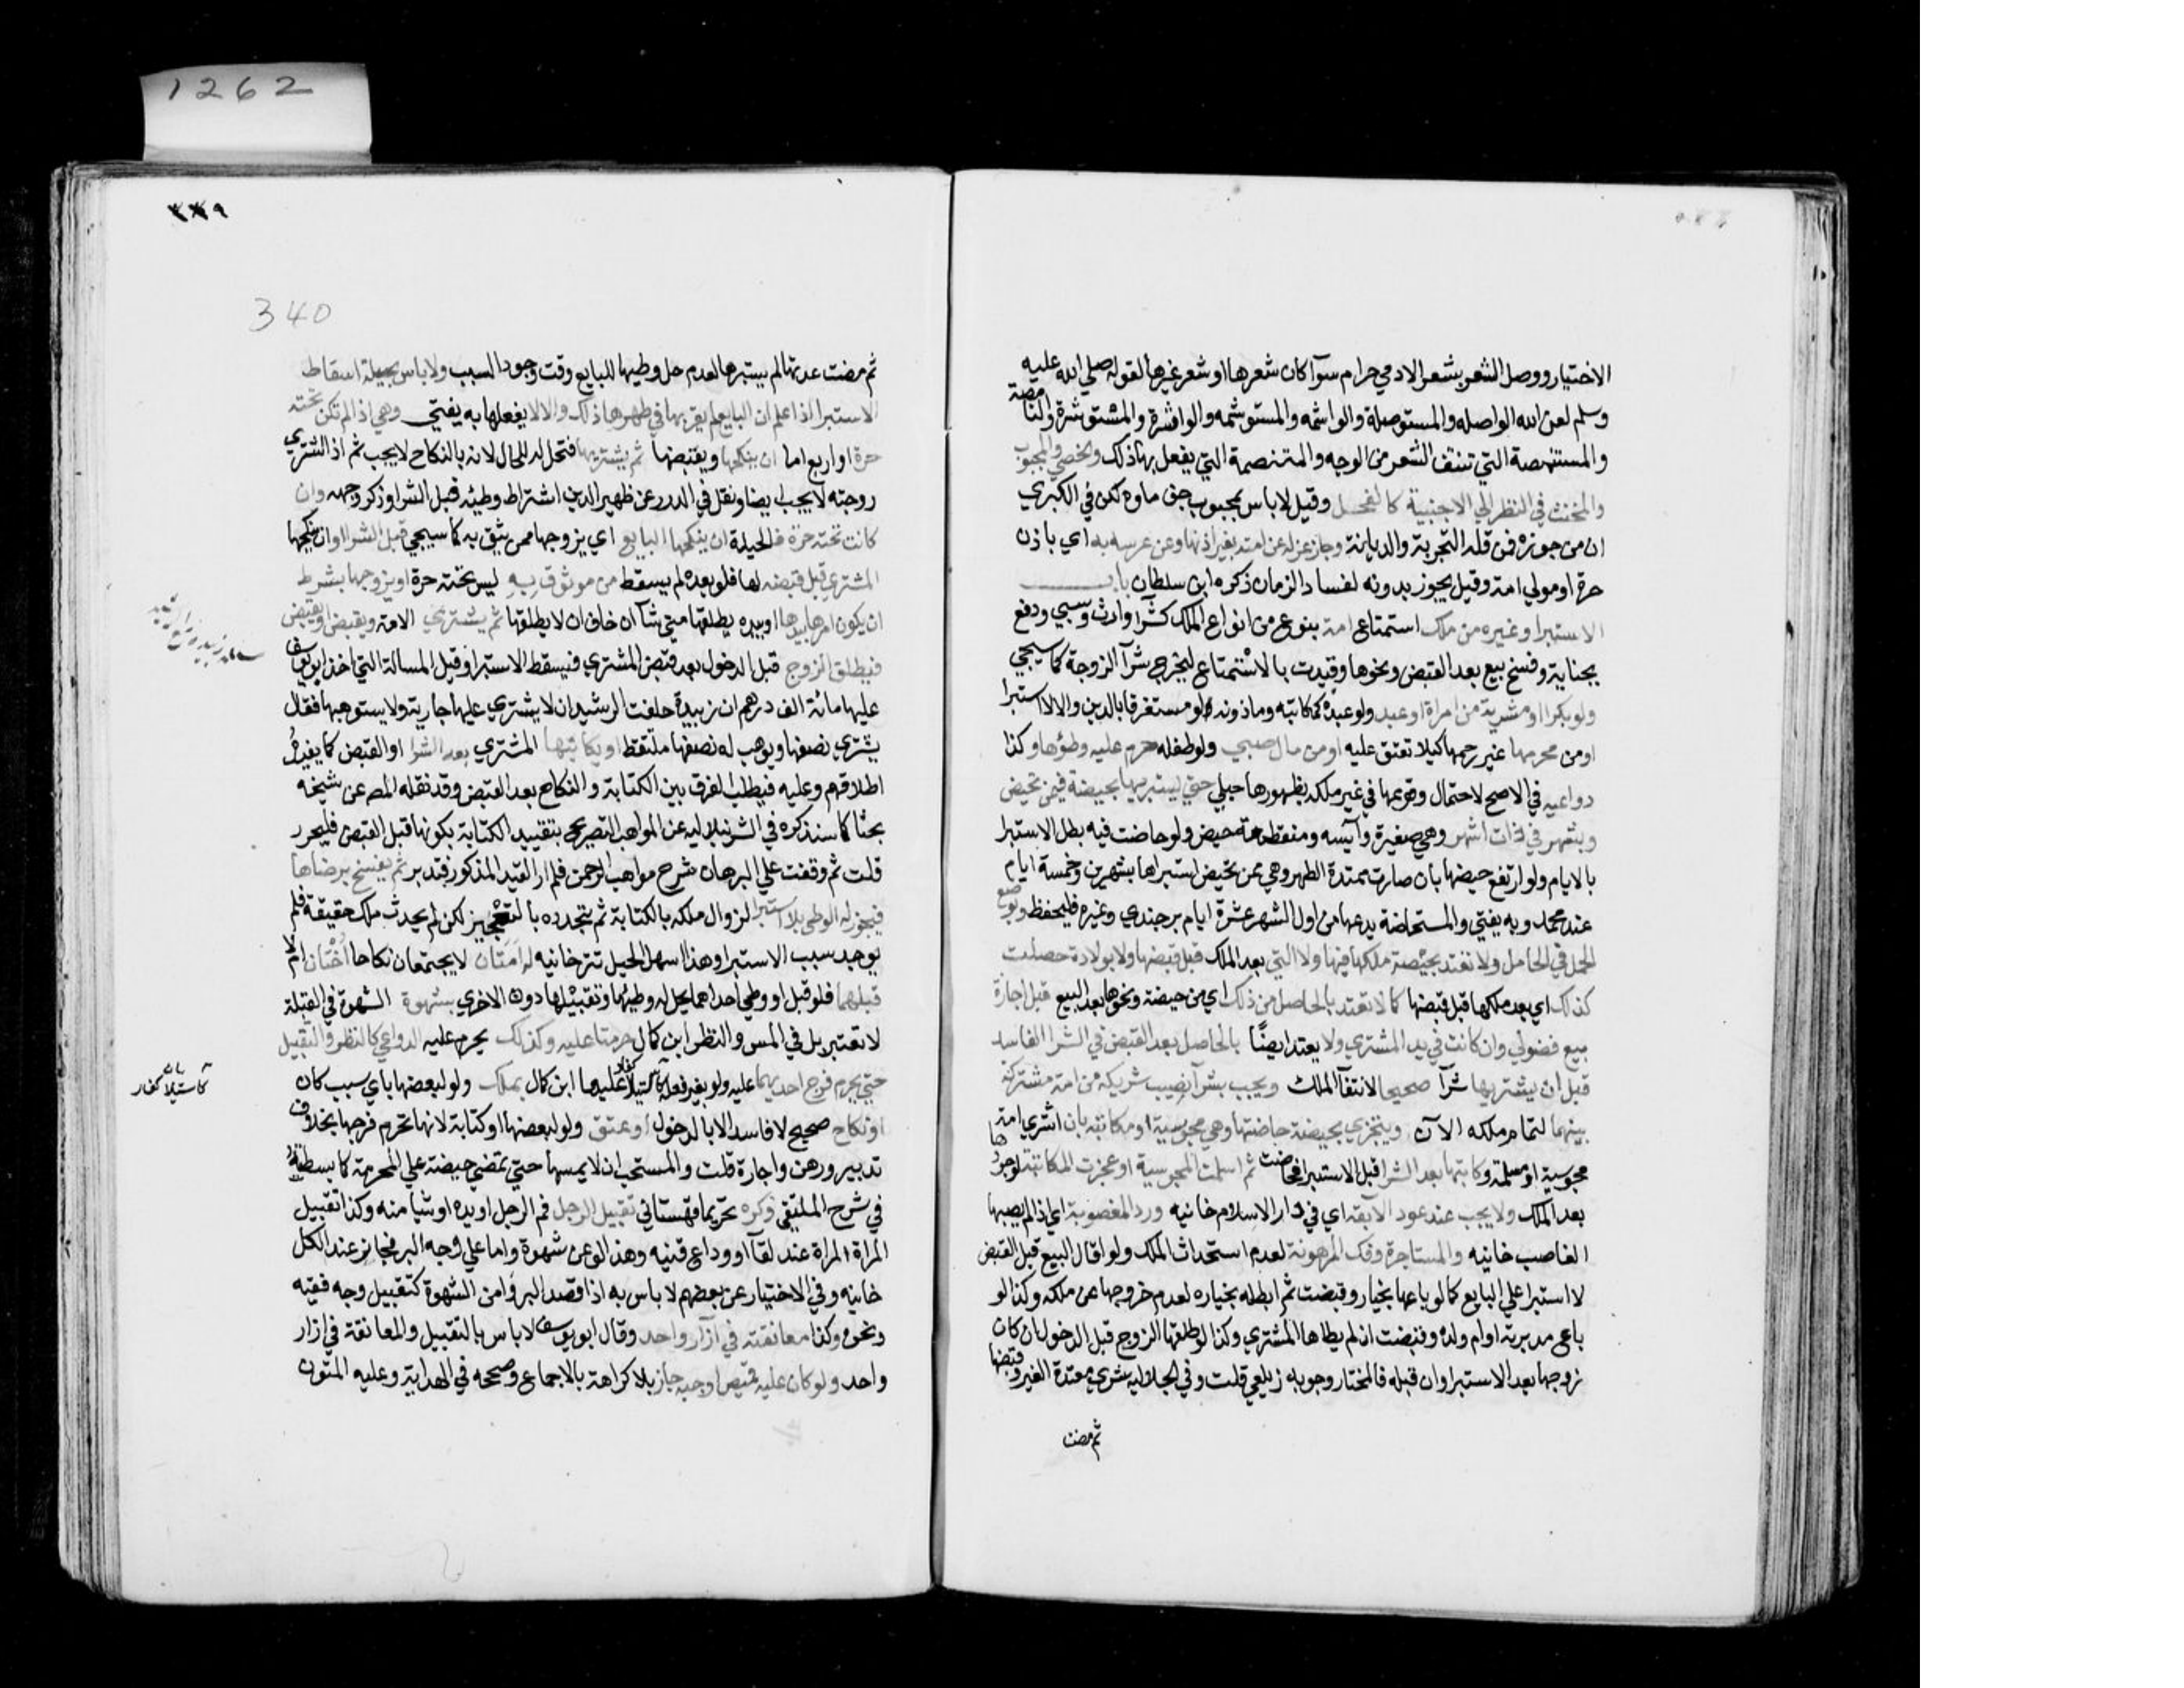 الاختيار ووصل الشعر بشعر الادمي حرام سوآ كان شعرها او شعر غيرها لقوله صلي الله عليه
وسلم لعن الله الواصله والمستوصلة والواشمه والمستوشمه والواشرة والمستوشرة والنامصة
والمستنمصة التي تنتف الشعر من الوجه والمتنمصة التي يفعل بها ذلك والخصي والمجبوب
والمخنث في النظر الي الاجنبية كالفحل وقيل لا باس بمجبوب جف ماوه لكن في الكبري
ان من جوزه فمن قلة التجربة والديانة وجاز عزله عن امته بغير اذنها وعن عرسه به اي باذن
حرة او مولي امة وقيل يجوز بدونه لفساد الزمان ذكره ابن سلطان باب
الاستبرا وغيره من ملك استمتاع امة بنوع من انواع الملك كشرآ وارث وسبي ودفع
بجناية وفسخ بيع بعد القبض ونحوها وقيدت بالاستمتاع ليخرج شرآ الزوجة كما سيجي
ولو بكرا او مشرية من امراة او عبد ولو عبده كمكاتبه وماذونه لو مستغرقا بالدين والا لا استبرا
او من محرمها غير رحمها كيلا تعتق عليه او من مال صبي ولو طفله حرم عليه وطؤها وكذا
دواعيه في الاصح لاحتمال وقوعها في غير ملكه بظهورها حبلي حتي يستبريها بحيضة فيمن تحيض
وبشهر في ذات اشهر وهي صغيرة وآيسه ومنقطعة حيض ولو حاضت فيه بطل الاستبرا
بالايام ولو ارتفع حيضها بان صارت ممتدة الطهر وهي ممن تحيض استبراها بشهرين وخمسة ايام
عند محمد وبه يفتي والمستحاضة يدعها من اول الشهر عشرة ايام برجندي وغيره فليحفظ وبوضع
الحمل في الحامل ولا تعتد بحيضة ملكها فيها ولا التي بعد الملك قبل قبضها ولا بولادة حصلت
كذلك اي بعد ملكها قبل قبضها كما لا تعتد بالحاصل من ذلك اي من حيضة ونحوها بعد البيع قبل اجازة
بيع فضولي وان كانت في يد المشتري ولا يعتد ايضًا بالحاصل بعد القبض في الشرا الفاسد
قبل ان يشتريها شرآ صحيحا لانتفآ الملك ويجب بشرآ نصيب شريكه من امة مشتركة
بينهما لتمام ملكه الآن ويتجزي بحيضة حاضتها وهي مجوسية او مكاتبته بان اشتري امة
مجوسية او مسلمة وكاتبها بعد الشرا قبل الاستبرا فحاضت ثم اسلمت المجوسية او عجزت المكاتبة لوجودها
بعد الملك ولا يجب عند عود الآبقة اي في دار الاسلام خانيه ورد المغصوبة اي اذا لم يصبها
الغاصب خانيه والمستاجرة وفك المرهونة لعدم استحداث الملك ولو اقال البيع قبل القبض
لا استبرا علي البايع كما لو باعها بخيار وقبضت ثم ابطله بخياره لعدم خروجها عن ملكه وكذا لو
باع مدبرته او ام ولده وقبضت ان لم يطاها المشتري وكذا لو طلقها الزوج قبل الدخول ان كان
زوجها بعد الاستبرا وان قبله فالمختار وجوبه زيلعي قلت وفي الجلاليه شري معتدة الغير وقبضها
ثم مضت
٣٣٩
340
ثم مضت عدتها لم يستبرها لعدم حل وطيها للبايع وقت وجود السبب ولا باس بحيلة اسقاط
الاستبرا اذا علم ان البايع لم يقربها في طهرها ذلك والا لا يفعلها به يفتي وهي اذا لم تكن تحته
حرة او اربع اما ان ينكحها ويقبضها ثم يشتريها فتحل له للحال لانه بالنكاح لا يجب ثم اذا اشتري
زوجته لا يجب ايضا ونقل في الدرر عن ظهير الدين اشتراط وطيئه قبل الشرا وذكر وجهه وان
كانت تحته حرة فالحيلة ان ينكحها البايع اي يزوجها ممن يثق به كما سيجي قبل الشرا او ان ينكحها
المشتري قبل قبضه لها فلو بعده لم يسقط من موثوق به ليس تحته حرة او يزوجها بشرط
ان يكون امرها بيدها او بيده يطلقها متي شآ ان خاف ان لا يطلقها ثم يشتري الامة ويقبض او يقبض
فيطلق الزوج قبل الدخول بعد قبض المشتري فيسقط الاستبرا وقيل المسالة التي اخذ ابو يوسف
عليها مائة الف درهم ان زبيدة حلفت الرشيد ان لا يشتري عليها جارية ولا يستوهبها فقال
يشتري نصفها ويوهب له نصفها ملتقط او يكاتبها المشتري بعد الشرا او القبض كما يفيده
اطلاقهم وعليه فيطلب الفرق بين الكتابة والنكاح بعد القبض وقد نقله المص عن شيخه
بحثا كما سنذكره في الشرنبلاليه عن المواهب التصريح بتقييد الكتابة بكونها قبل القبض فليحرر
قلت ثم وقفت علي البرهان شرح مواهب الرحمن فلم ار القيد المذكور فتدبر ثم يفسخ برضاها
فيجوز له الوطي بلا استبرا لزوال ملكه بالكتابة ثم يتجدده بالتعجيز لكن لم يحدث ملك حقيقة فلم
يوجد سبب الاستبرا وهذا اسهل الحيل تترخانيه له امتان لا يجتمعان نكاحا اختان ام لا
قبلهما فلو قبل او وطي احداهما يحل له وطيها وتقبيلها دون الاخري بشهوة الشهوة في القبلة
لا تعتبر بل في المس والنظر ابن كمال حرمتا عليه وكذلك يحرم عليه الدواعي كالنظر والتقبيل
حتي يحرم فرج احديهما عليه ولو بغير فعله كاستيلآ كفار عليها ابن كمال بملك ولو لبعضها باي سبب كان
او نكاح صحيح لا فاسد الا بالدخول او عتق ولو لبعضها او كتابة لانها تحرم فرجها بخلاف
تدبير ورهن واجارة قلت والمستحب ان لا يمسها حتي تمضي حيضة علي المحرمة كما بسطته
في شرح الملتقي وكره تحريما قهستاني تقبيل الرجل فم الرجل او يده او شيا منه وكذا تقبيل
المراة المراة عند لقآ او وداع قنيه وهذا لو عن شهوة واما علي وجه البر فجايز عند الكل
خانيه وفي الاختيار عن بعضهم لا باس به اذا قصد البر وامن الشهوة كتقبيل وجه فقيه
ونحوه وكذا معانقته في آزار واحد وقال ابو يوسف لا باس بالتقبيل والمعانقة في ازار
واحد ولو كان عليه قميص او جبه جاز بلا كراهة بالاجماع وصححه في الهداية وعليه المتون
كاستيلاآ كفار
1262